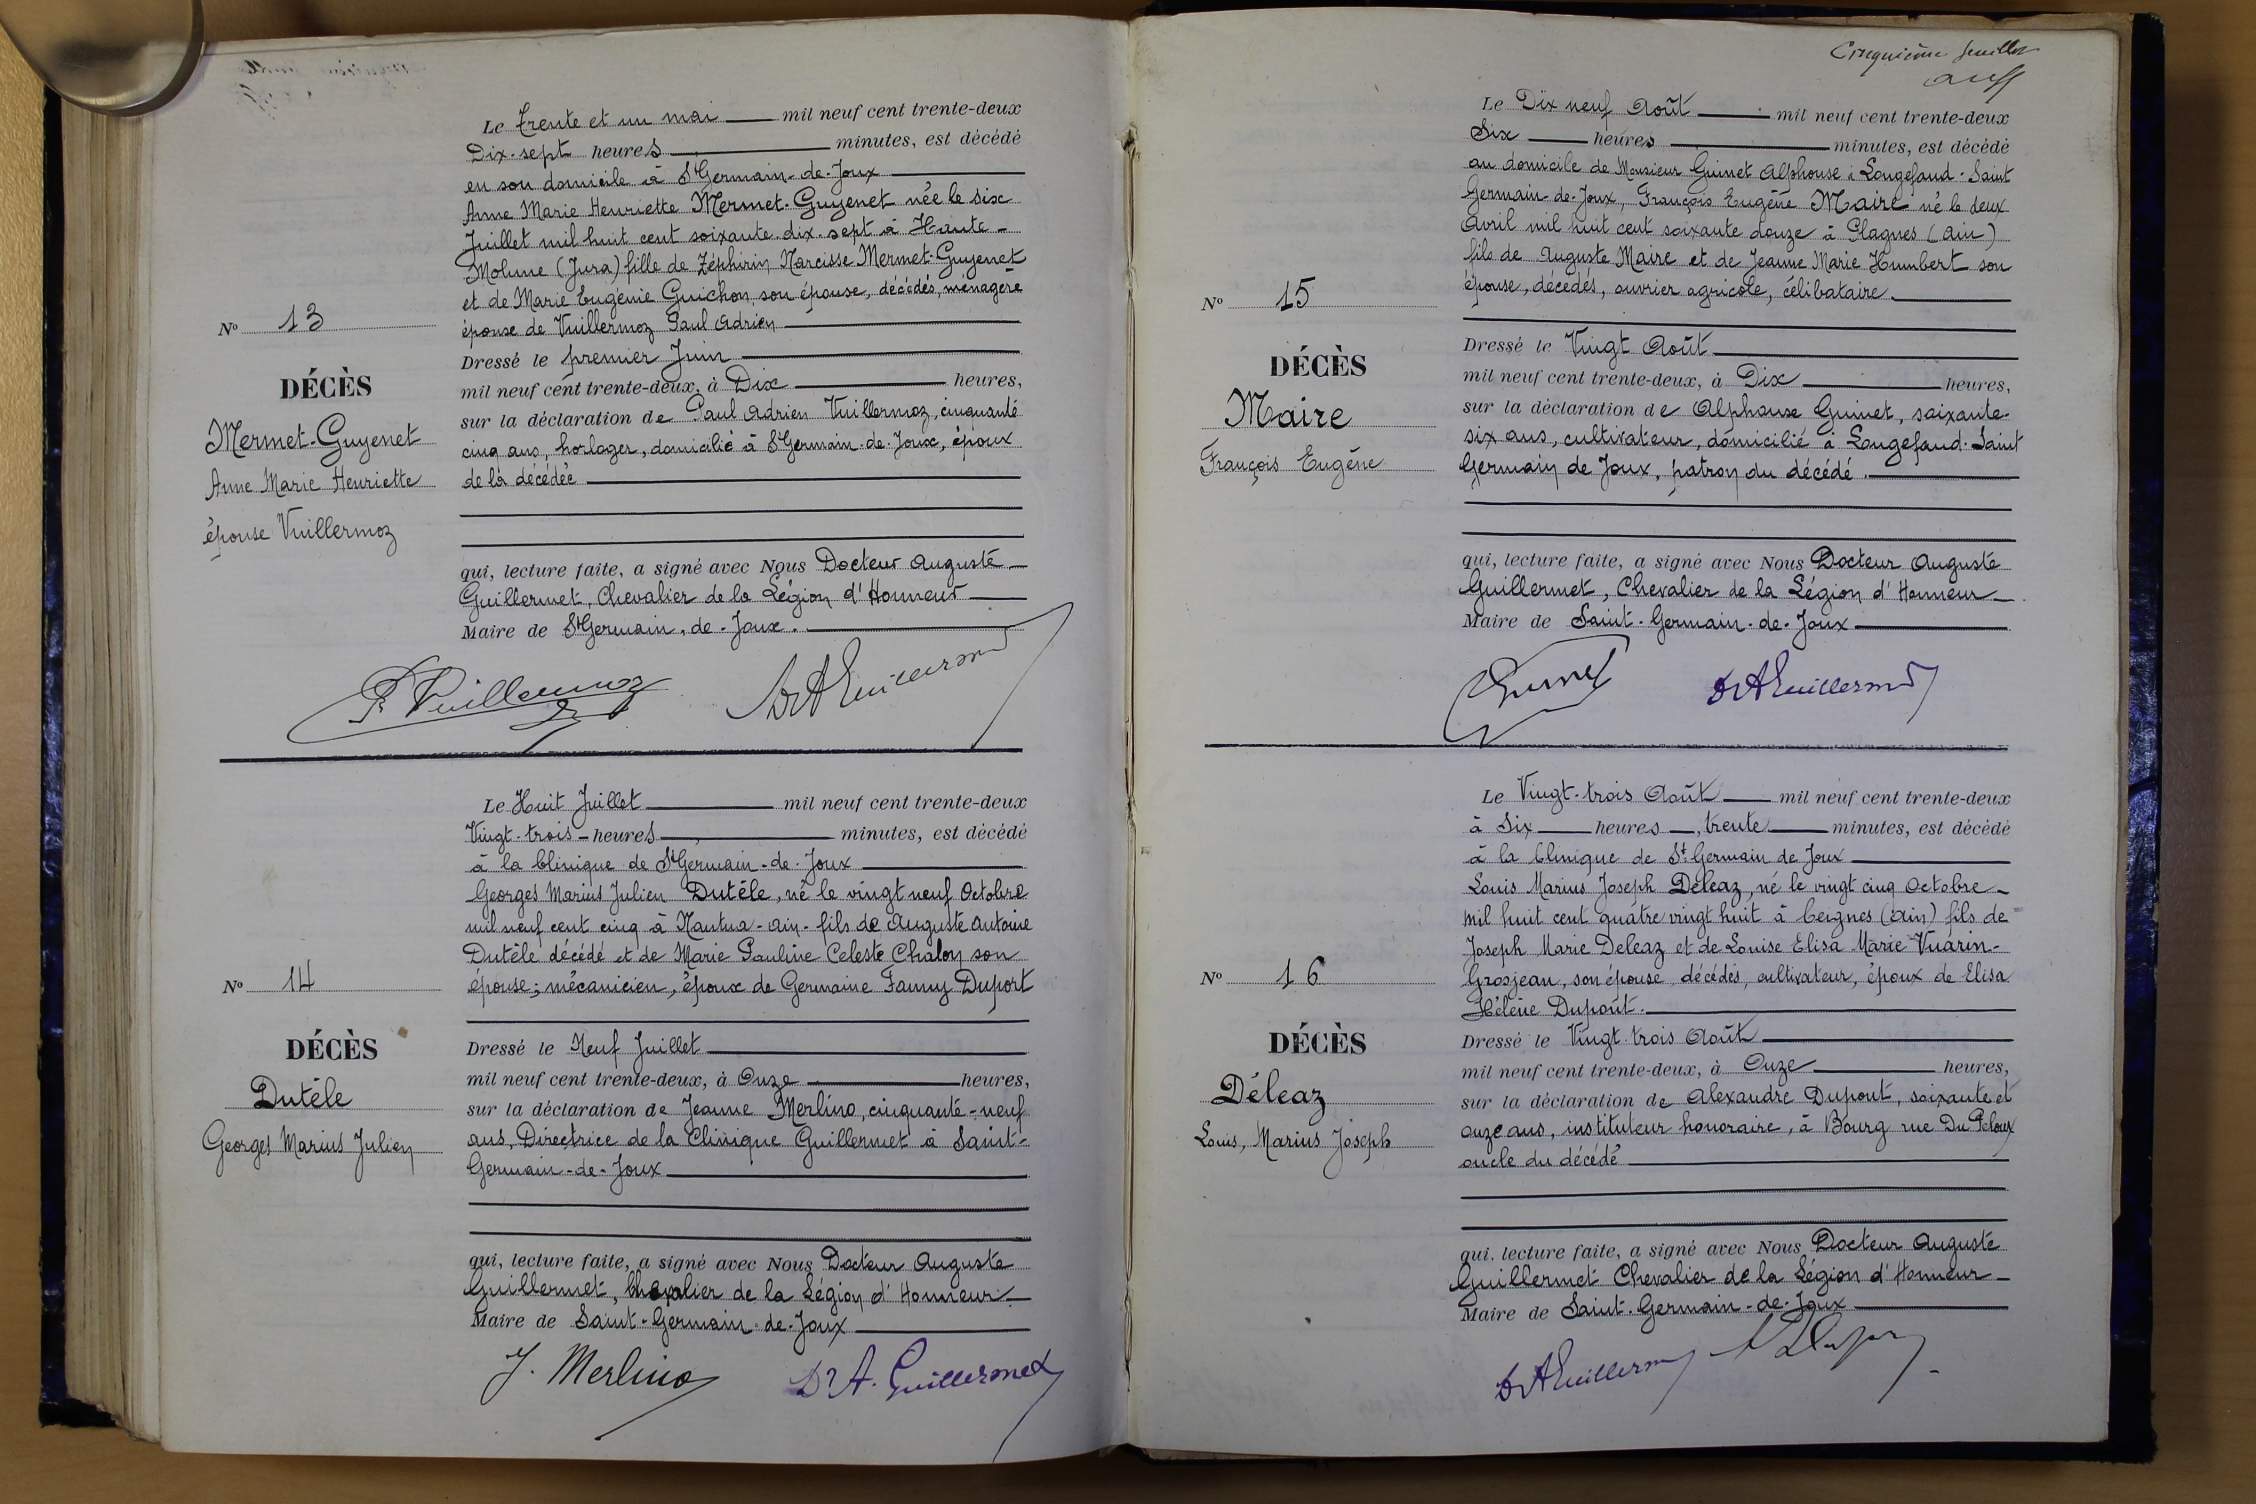 Le trente et un mai mil neuf cent trente-deux
Dix-sept heures minutes, est décédé
en son domicile à St Germain-de-Joux
Anne Marie Henriette Mermet-Guyenet née le six
Juillet mil huit cent soixante-dix-sept à Haute-
Molune (Jura) fille de Zéphirin Narcisse Mermet-Guyenet
et de Marie Eugénie Guichon son épouse, décédés, ménagère
épouse de Vuillermoz Paul Adrien
Dressé le premier Juin
mil neuf cent trente-deux, à Dix heures,
sur la déclaration de Paul Adrien Vuillermoz, cinquante
cinq ans, horloger, domicilié à St Germain-de-Joux, époux
de la décédée
qui, lecture faite, a signé avec Nous Docteur Auguste
Guillermet, Chevalier de la Légion d'Honneur
Maire de St Germain-de-Joux.
P. Vuillermoz Dr A Guillermet
No 13
DÉCÈS
Mermet-Guyenet
Anne Marie Henriette
épouse Vuillermoz
Le Huit Juillet mil neuf cent trente-deux
Vingt-trois heures minutes, est décédé
à la Clinique de St Germain-de-Joux
Georges Marius Julien Dutèle, né le vingt neuf Octobre
mil neuf cent cinq à Nantua-Ain-fils de Auguste Antoine
Dutèle décédé et de Marie Pauline Celeste Chalon son
épouse; mécanicien, époux de Germaine Fanny Duport
Dressé le Neuf Juillet
mil neuf cent trente-deux, à Onze heures,
sur la déclaration de Jeanne Merlino, cinquante-neuf
ans, Directrice de la Clinique Guillermet à Saint-
Germain-de-Joux
qui, lecture faite, a signé avec Nous Docteur Auguste
Guillermet, Chevalier de la Légion d'Honneur
Maire de Saint-Germain-de-Joux
J. Merlino Dr A. Guillermet
No 14
DÉCÈS
Dutèle
Georges Marius Julien
Cinquième feuillet
Le Dix neuf Août mil neuf cent trente-deux
Six heures minutes, est décédé
au domicile de Monsieur Guinet Alphonse à Longefand-Saint
Germain-de-Joux, François Eugène Maire né le deux
Avril mil huit cent soixante douze à Plagnes (Ain)
fils de Auguste Maire et de Jeanne Marie Humbert son
épouse, décédés, ouvrier agricole, célibataire.
Dressé le Vingt Août
mil neuf cent trente-deux, à Dix heures,
sur la déclaration de Alphonse Guinet, soixante-
six ans, cultivateur, domicilié à Longefand-Saint
Germain de Joux, patron du décédé.
qui, lecture faite, a signé avec Nous Docteur Auguste
Guillermet, Chevalier de la Légion d'Honneur
Maire de Saint-Germain-de-Joux
Guinet Dr A Guillermet
No 15
DÉCÈS
Maire
François Eugène
Le Vingt-trois Août mil neuf cent trente-deux
à Six heures, trente minutes, est décédé
à la Clinique de St Germain de Joux
Louis Marius Joseph Déleaz, né le vingt cinq Octobre
mil huit cent quatre vingt huit à Ceignes (Ain) fils de
Joseph Marie Deleaz et de Louise Elisa Marie Vuarin-
Grosjean, son épouse décédés, cultivateur, époux de Elisa
Hélène Dupont.
Dressé le Vingt-trois Août
mil neuf cent trente-deux, à Onze heures,
sur la déclaration de Alexandre Dupont, soixante et
onze ans, instituteur honoraire, à Bourg rue Du Peloux
oncle du décédé
qui, lecture faite, a signé avec Nous Docteur Auguste
Guillermet Chevalier de la Légion d'Honneur
Maire de Saint-Germain-de-Joux
Dr A Guillermet
No 16
DÉCÈS
Déleaz
Louis, Marius Joseph